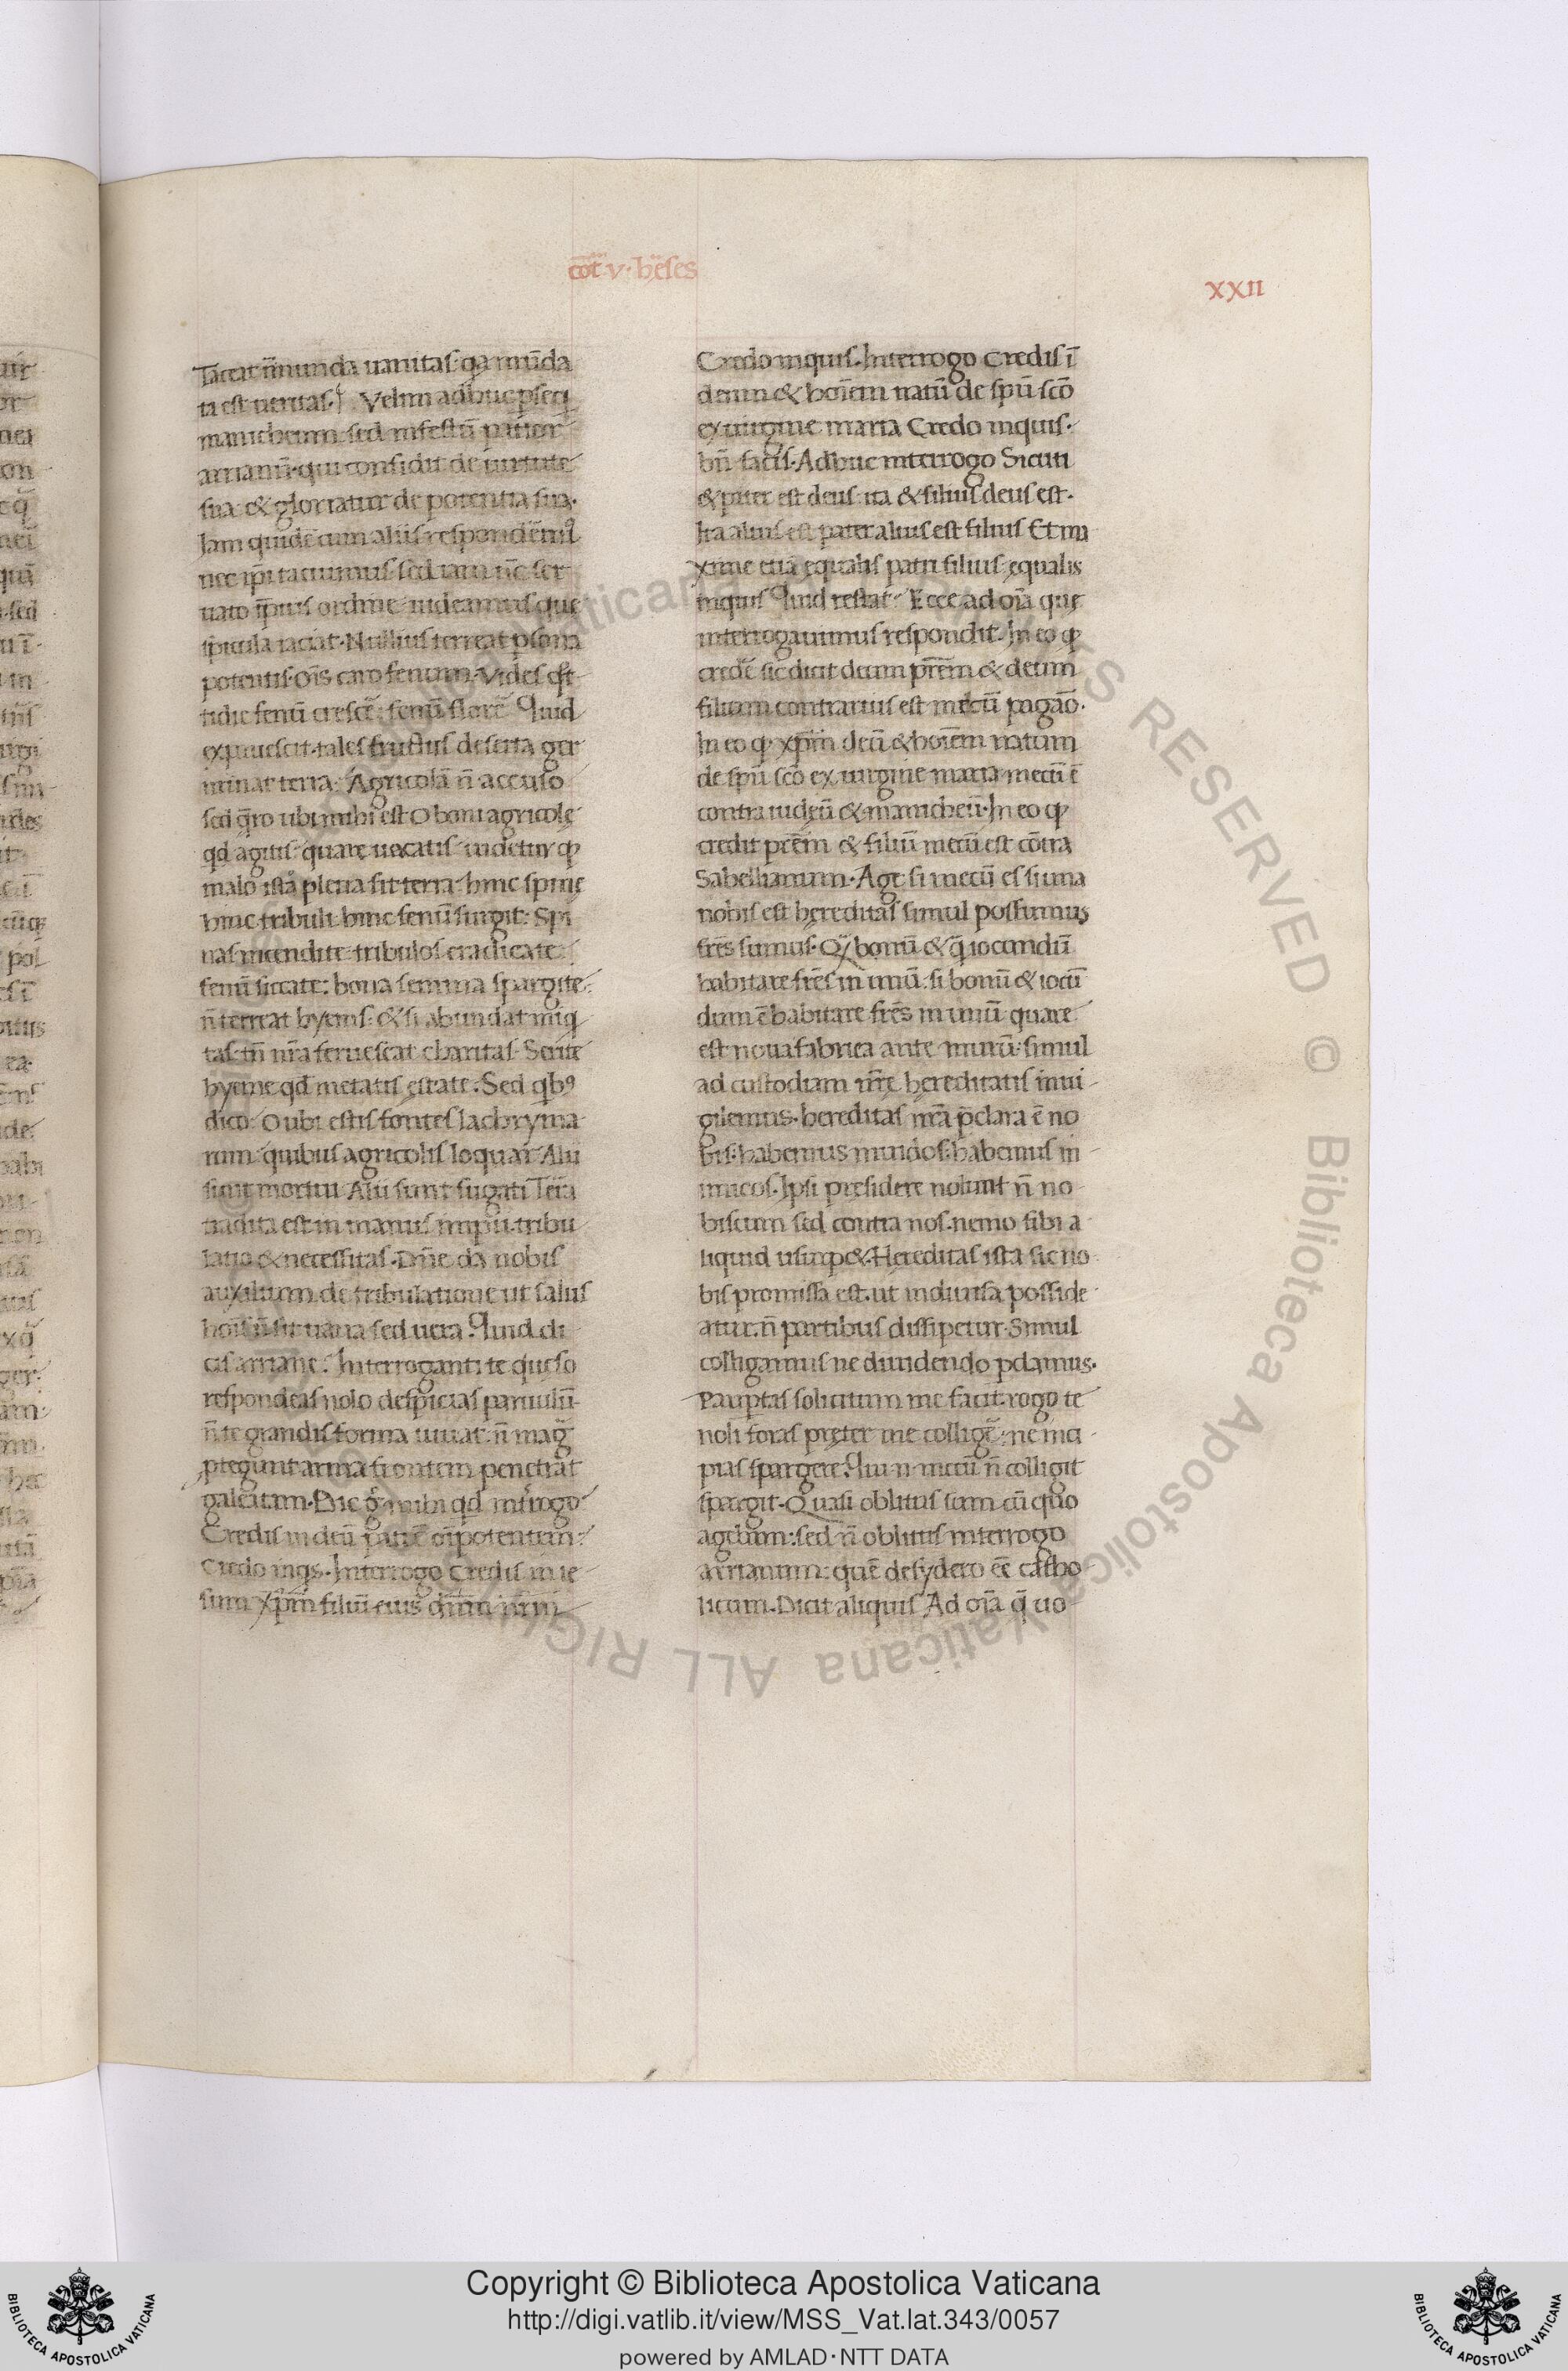 cōt v. hēses
XXII
Taceat īmunda uanitas. qa mūda
ta est ueritas. Velim adhuc pseq
manicheum. sed infestū patior
arrianū. qui confidit de uirtute
sua: & gloriatur de potentia sua.
Iam quidē cum aliis respondēmꝰ
nec ip̄i tacuimus. sed iam nc̄ ser
uato ip̄ius ordine uideamus que
spicula iaciat. Nullius terreat psona
potentis. Oīs caro fenum. Vides qͦt
tidie fenū crescē: fenū florē. Quid
expauescit. tales fructus deserta ger
minat terra. Agricolā n̄ accuso
sed q̄ro ubi mihi est O boni agricole
qd agitis quare uacatis uidetur ꝙ
malo ista plena sit terra. hinc spinę
hinc tribuli hinc fenū surgit. Spi
nas incendite tribulos eradicate
fenū siccate: bona semina spargite.
n̄ terreat hyems. & si abundat iniq
tas. tn̄ nr̄a feruescat charitas. Serite
hyeme qd metatis ęstate. Sed qbꝰ
dico. O ubi estis fontes lachryma
rum quibus agricolis loquar Alii
sunt mortui Alii sunt fugati Terra
tradita est in manus impii. tribu
latio & necessitas. Dn̄e da nobis
auxilium de tribulatione ut salus
hoīs n̄ sit uana sed uera. Quid di
cis arriane. Interroganti te queso
respondeas nolo despicias paruulū
n̄ te grandis forma iuuat. n̄ maḡ
ptegunt arma frontem penetrat
galeatam. Dic g̊ mihi qd intr̄ogo
Credis in deū patrē oīpotentem.
Credo inqs. Interrogo Credis in ie
sum xp̄m filiū eius dn̄m nr̄m
Credo inquis. Interrogo Credis ī
deum & hoīem natū de spū scō
ex uirgine maria Credo inquis.
bn̄ facis. Adhuc interrogo Sicuti
& pater est deus: ita & filius deus est.
Ita alius est pater alius est filius Et ma
xime etiā equalis patri filius equalis
inquis Quid restat. Ecce ad oīa que
interrogauimus respondit. In eo ꝙ
credē sic dicit deum prēm & deum
filium contrarius est mecū pagāo.
In eo ꝙ xp̄m deū & hoīem natum
de spū scō ex uirgine maria mecū ē
contra iudeū & manicheū. In eo ꝙ
credit prēm & filiū mecū est cōtra
Sabellianum. Age si mecū es si una
nobis est hereditas simul possumus
frēs sumus. Q̄ bonū & q̄ iocundū
habitare frēs in unū. si bonū & iocū
dum ē habitare frēs in unū quare
est noua fabrica ante murū. simul
ad custodiam nr̄ę hereditatis inui
gilemus. hereditas nr̄a p̄clara ē no
bis. habemus inuidos. habemus in
imicos. Ipsi presidere nolunt n̄ no
biscum sed contra nos. nemo sibi a
liquid usurp&. Hereditas ista sic no
bis promissa est. ut indiuisa posside
atur. n̄ partibus dissipetur. Simul
colligamus ne diuidendo pdamus.
Pauptas solicitum me facit. rogo te
noli foras preter me colligē: ne inci
pias spargere. Qui n̄ mecū n̄ colligit
spargit. Quasi oblitus sum cū quo
agebam: sed n̄ oblitus interrogo
arrianum: quē desydero eē catho
licum. Dicit aliquis Ad oīa q̄ uo
Copyright © Biblioteca Apostolica Vaticana
http://digi.vatlib.it/view/MSS_Vat.lat.343/0057
powered by AMLAD·NTT DATA